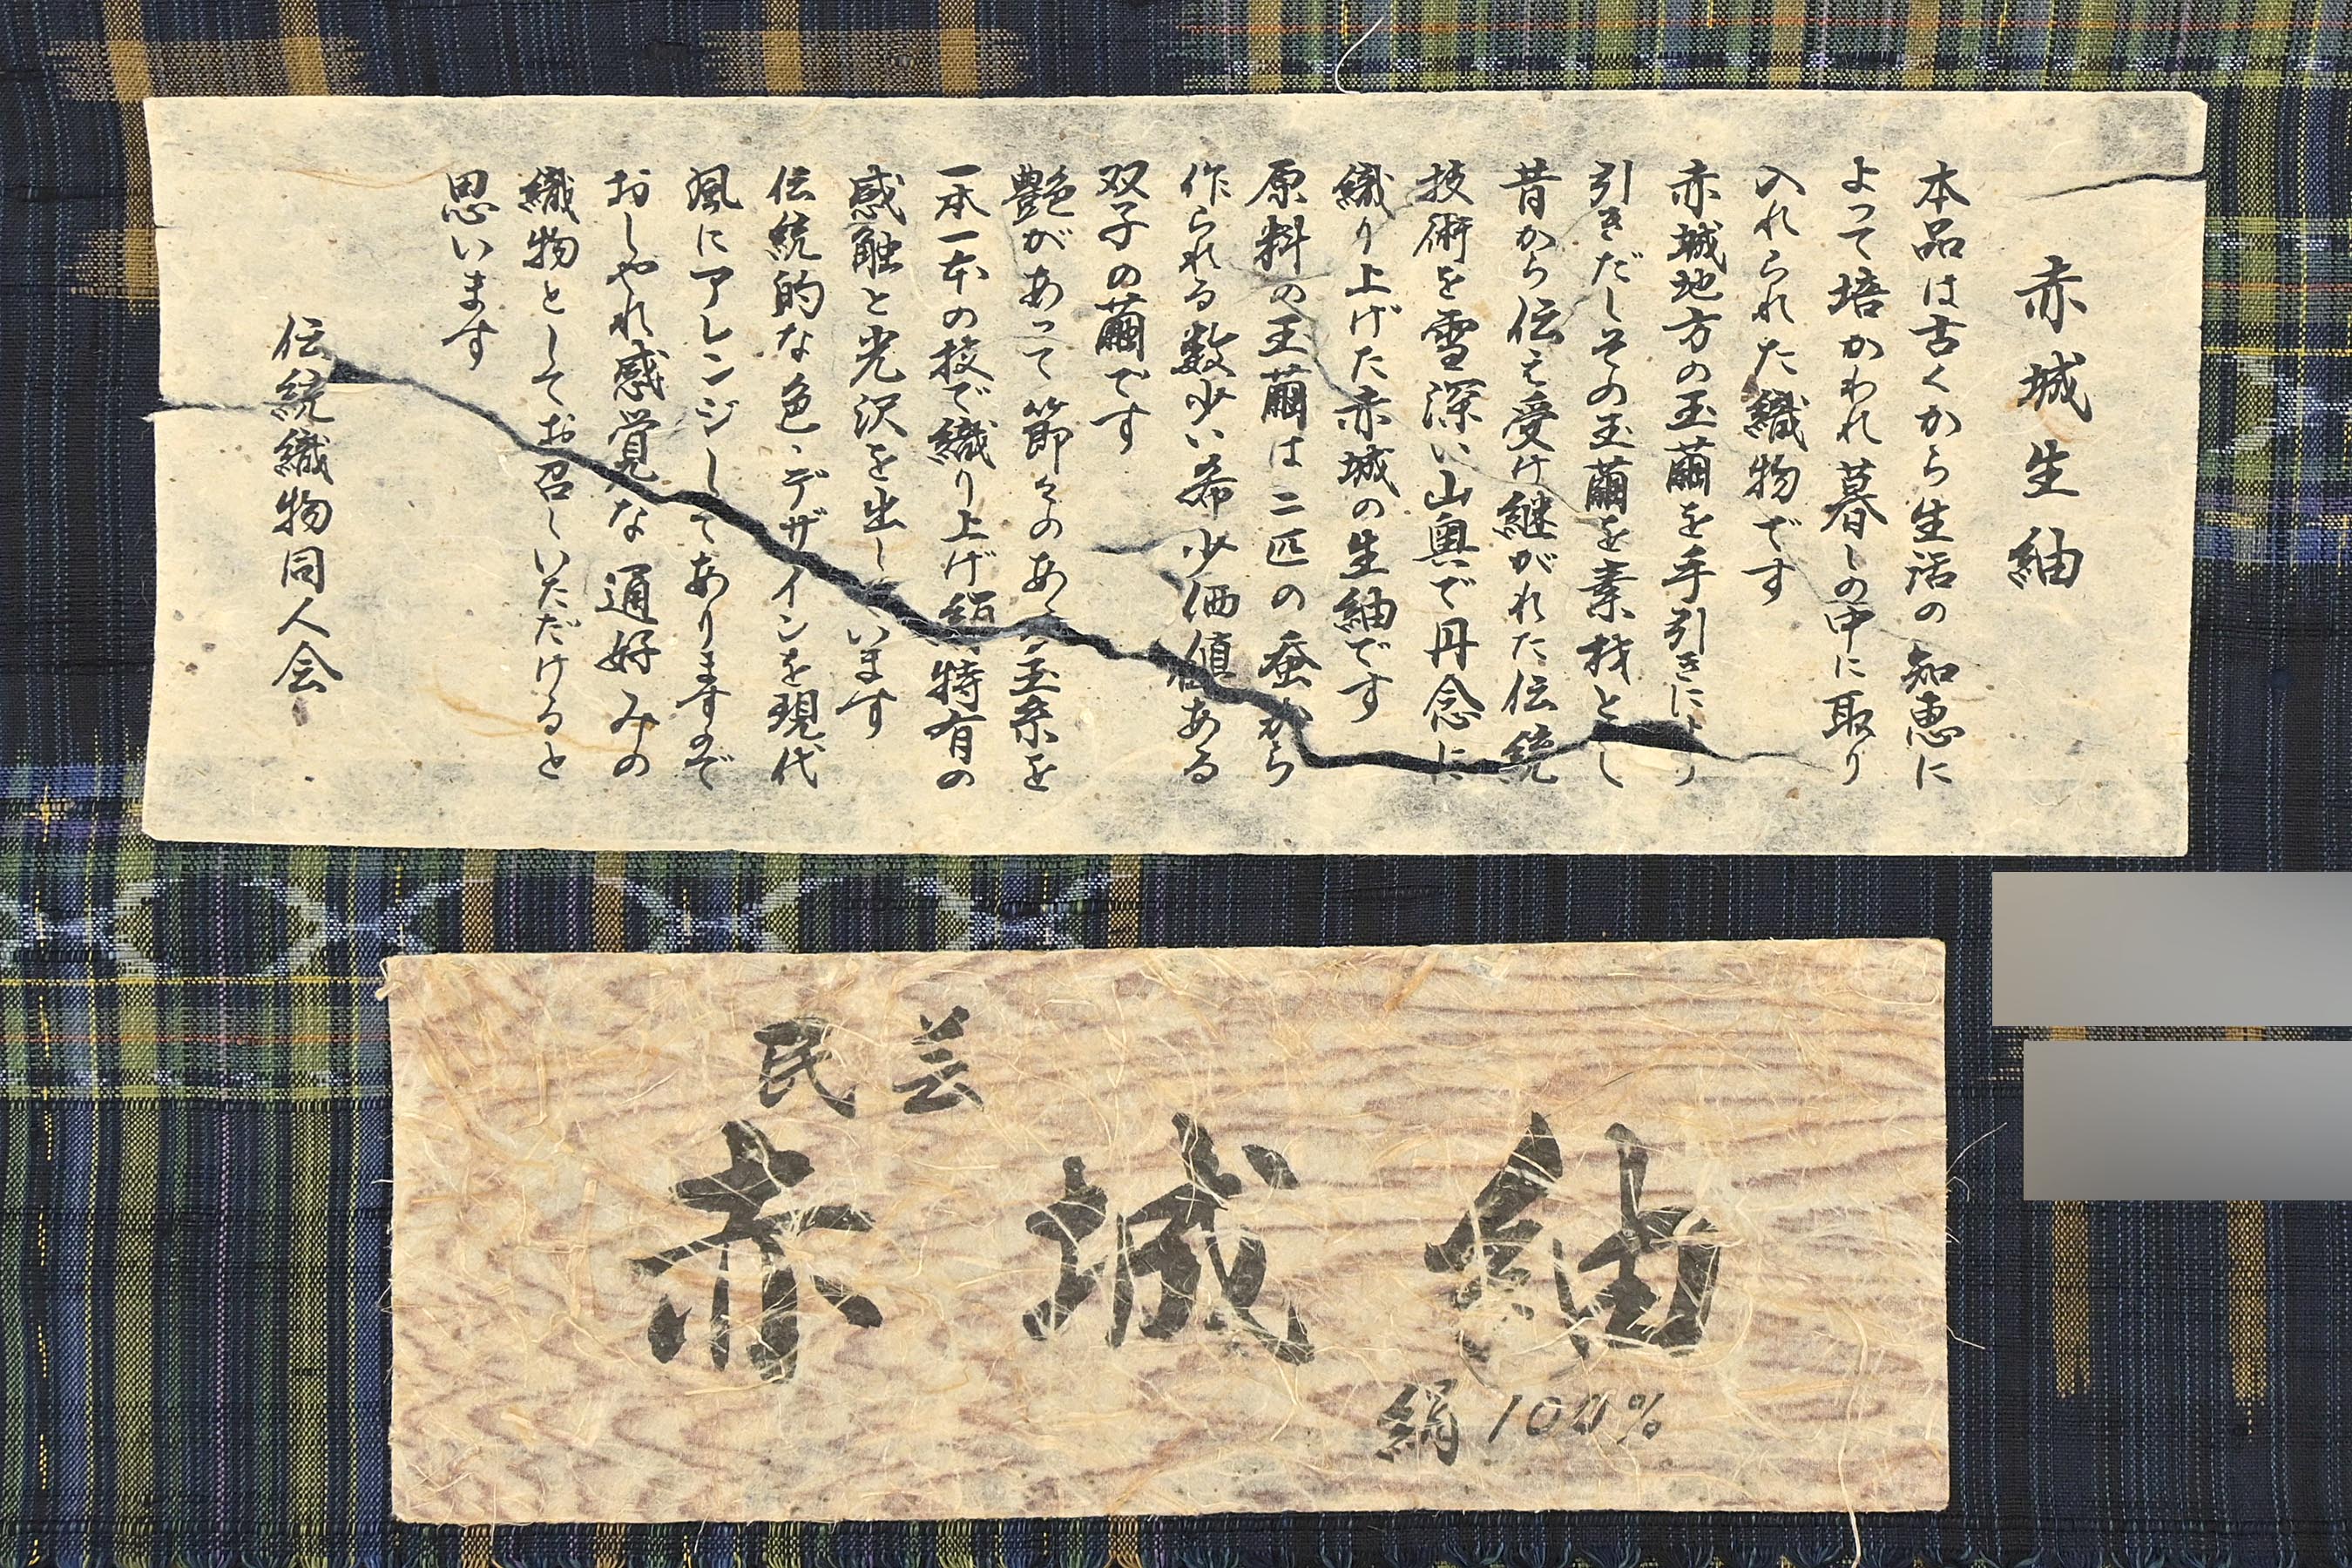 赤城生紬
本品は古くから生活の知恵に
よって培かわれ暮しの中に取り
入れられた織物です
赤城地方の玉繭を手引きにより
引きだしその玉繭を素材とし
昔から伝え受け継がれた伝統
技術を雪深い山奥で丹念に
織り上げた赤城の生紬です
原料の玉繭は二匹の蚕から
作られる数少い希少価値ある
双子の繭です
艶があって節々のある玉糸を
一本一本の技で織り上げ絹特有の
感触と光沢を出しています
伝統的な色、デザインを現代
風にアレンジしてありますので
おしゃれ感覚な通好みの
織物としてお召しいただけると
思います
伝統織物同人会
民芸
赤城紬
絹100%